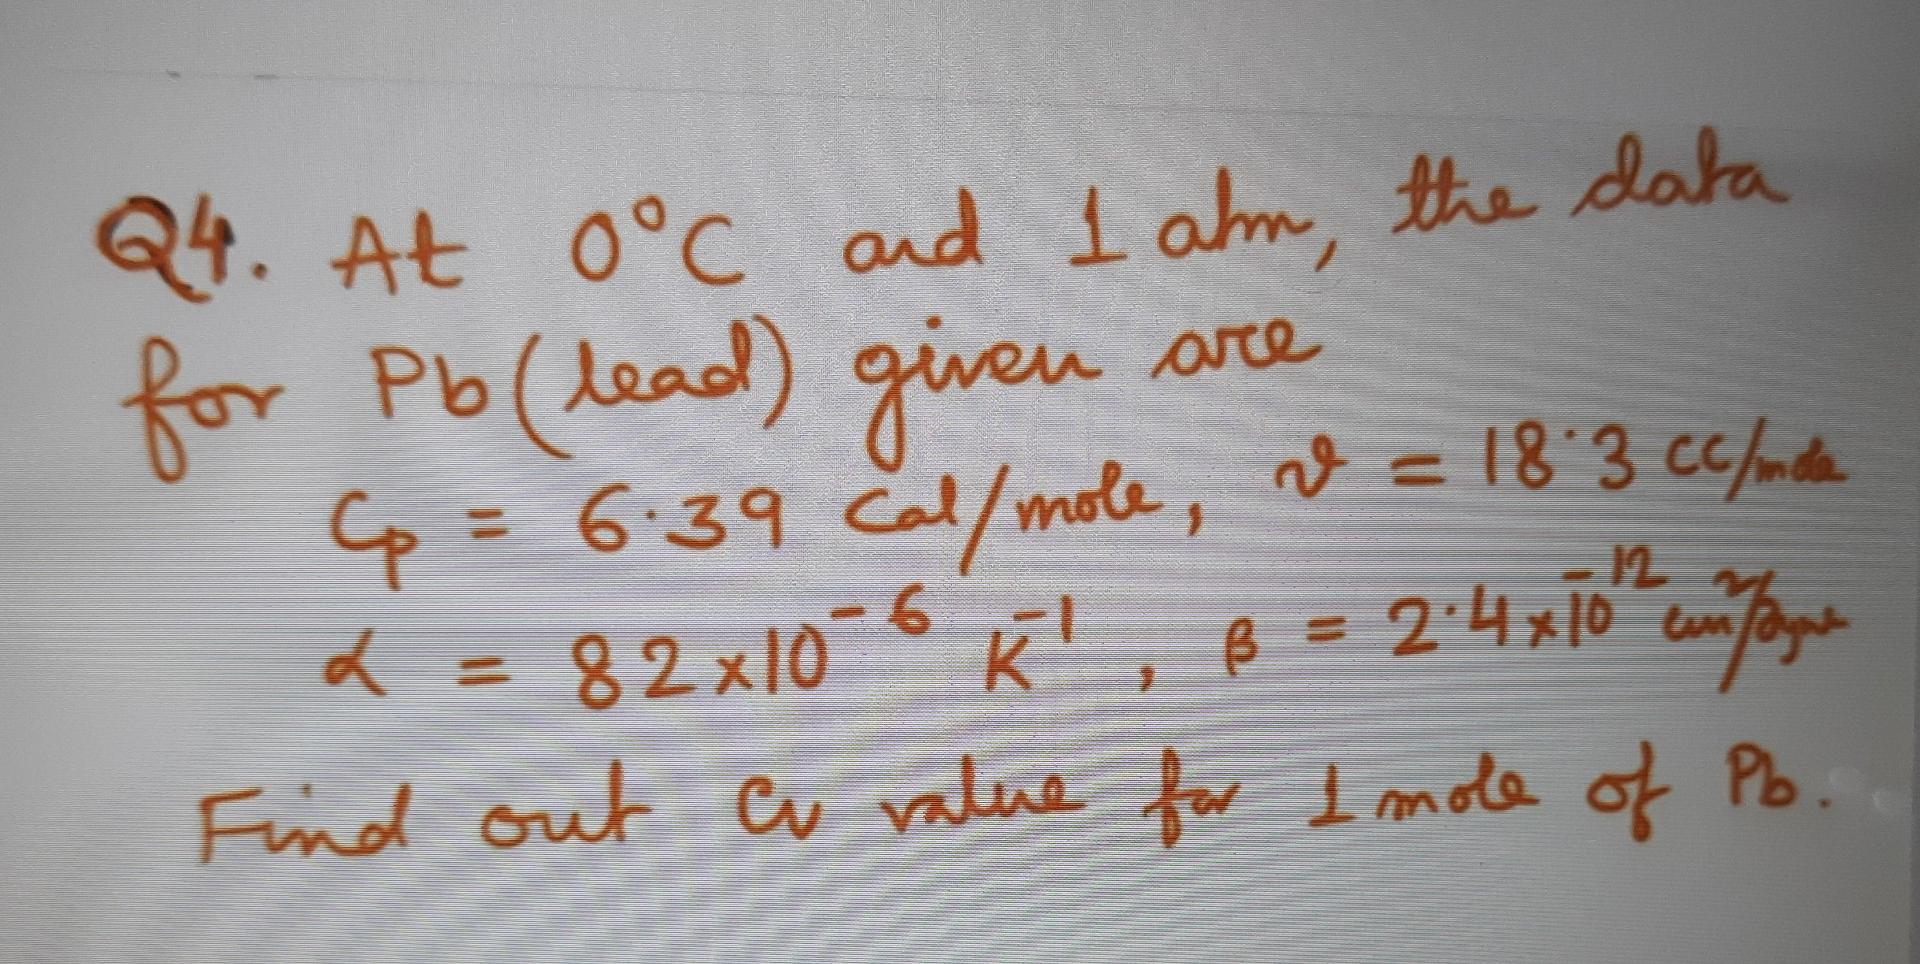 Q4. At 0°C and 1 atm, the data
for Pb (lead) given are
Cp = 6.39 Cal/mole, v = 18.3 cc/mole
α = 82x10⁻⁶ K⁻¹, β = 2.4x10⁻¹² cm²/dyne
Find out Cv value for 1 mole of Pb.